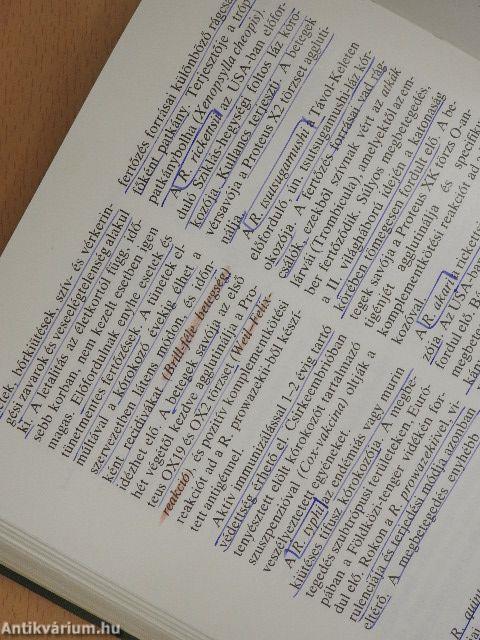 tek, bőrkiütések, szív- és vérkerin-
gési zavarok és veseelégtelenség alakul
ki. A letalitás az életkortól függ, idő-
sebb korban, nem kezelt esetben igen
magas. Előfordulnak enyhe esetek és
tünetmentes fertőzések. A tünetek el-
múltával a kórokozó évekig élhet a
szervezetben látens módon, és időn-
ként recidívákat (Brill-féle betegség)
idézhet elő. A betegek savója az első
hét végétől kezdve agglutinálja a Pro-
teus OX19 és OX2 törzset (Weil-Felix-
reakció), és pozitív komplementkötési
reakciót ad a R. prowazekii-ből készí-
tett antigénnel.
Aktív immunizálással 1-2 évig tartó
védettség érhető el. Csirkeembrióban
tenyésztett elölt kórokozót tartalmazó
szuszpenzióval (Cox-vakcina) oltják a
veszélyeztetett egyéneket.
A R. typhi az endémiás vagy murin
kiütéses tífusz kórokozója. A megbe-
tegedés szubtrópusi területeken, Euró-
pában a Földközi-tenger vidékén for-
dul elő. Rokon a R. prowazekiivel, vi-
rulenciája és terjedési módja azonban
eltérő. A megbetegedés enyhébb
fertőzés forrásai különböző rágcsá
főként patkány. Terjesztője a tróp
patkánybolha (Xenopsylla cheopis).
A R. rickettsii az USA-ban előfor-
duló Sziklás-hegységi foltos láz kóro-
kozója. Kullancs terjeszti. A betegek
vérsavója a Proteus X2 törzset aggluti-
nálja.
A R. tsutsugamushi a Távol-Keleten
előforduló, ún. tsutsugamushi-láz kór-
okozója. A fertőzés forrásai vad rág-
csálók, ezekből szívnak vért az atkák
lárvái (Trombicula), amelyektől az em-
ber fertőződik. Súlyos megbetegedés,
a II. világháború idején a katonaság
körében tömegesen fordult elő. A be-
tegek savója a Proteus XK törzs O-an-
tigénjét agglutinálja és specifik
komplementkötési reakciót ad a
kozóval.
A R. akari a ricket
zója. Az USA-ba
fordul elő. B
megbete
Antikvárium.hu